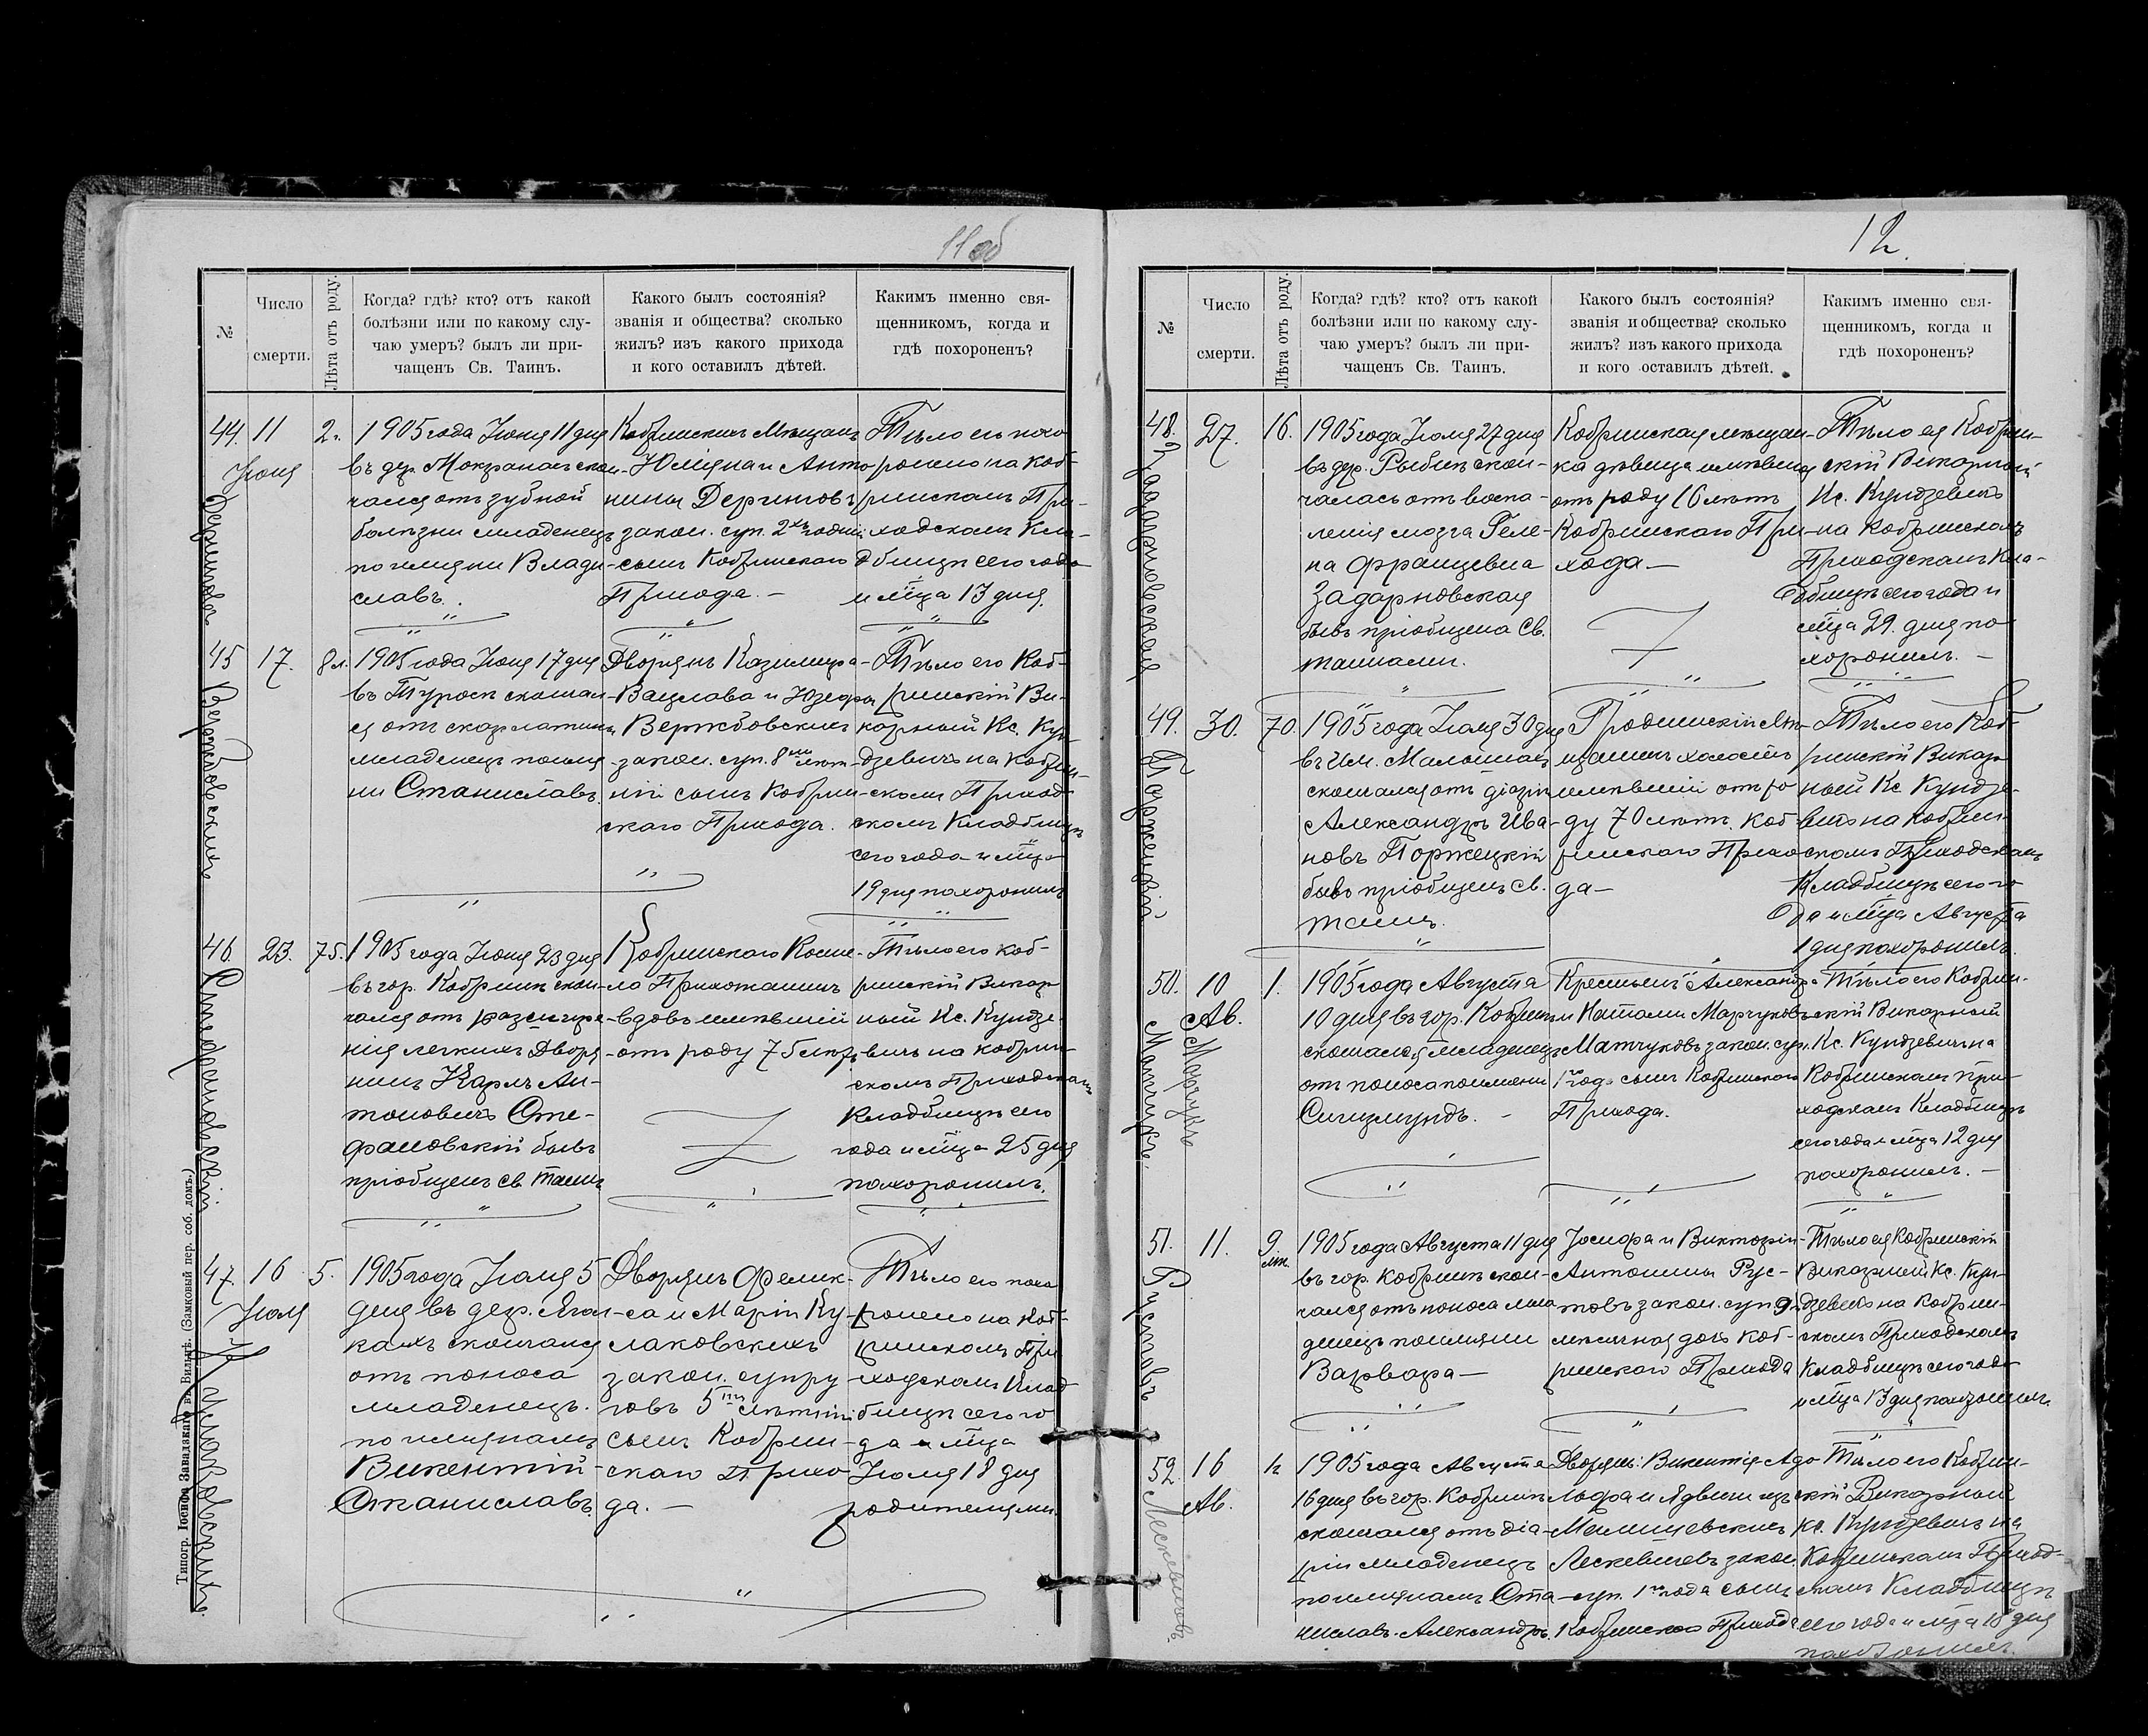 11 об
№
Число
смерти.
Лѣта отъ роду.
Когда? гдѣ? кто? отъ какой
болѣзни или по какому слу-
чаю умеръ? былъ ли при-
чащенъ Св. Таинъ.
Какого былъ состоянія?
званія и общества? сколько
жилъ? изъ какого прихода
и кого оставилъ дѣтей.
Какимъ именно свя-
щенникомъ, когда и
гдѣ похороненъ?
44.
11
Іюня
2 г.
1905 года Іюня 11 дня
въ дер. Мокранахъ скон-
чался отъ зубной
болѣзни младенецъ
по имени Влади
славъ.
Кобринскихъ Мѣщанъ
Юліяна и Анто
нины
закон. суп. 2хъ годній
сынъ Кобринскаго
Прихода. -
Тѣло его похо
ронено на Коб-
ринскомъ При-
ходскомъ Кла-
дбищѣ сего года
и мѣца 13 дня.
45
Вержбовскихъ
17.
8 л.
1905 года Іюня 17 дня
въ скончал
ся отъ скарлатины
младенецъ по име
ни Станиславъ.
Дворянъ Казимира-
Вацлава и Юзефы
Вержбовскихъ
закон. суп. 8ми лѣт-
ній сынъ Кобрин-
скаго Прихода.
Тѣло его Коб-
ринскій Ви-
карный Кс. Кун-
дзевичъ на Кобрин-
скомъ Приход
скомъ Кладбищѣ
сего года и мѣца
19 дня похоронилъ
46
Стефановскій
23.
75.
1905 года Іюня 23 дня
въ гор. Кобринѣ скон-
чался отъ расшире-
нія легкихъ Дворя
нинъ Карлъ Ан-
тоновичъ Сте-
фановскій бывъ
пріобщенъ св. таинъ
Кобринскаго Косте-
ла Прихожанинъ
вдовъ имѣвшій
отъ роду 75 лѣтъ
Тѣло его Коб-
ринскій Викар
ный Кс. Кундзе-
вичъ на Кобрин-
скомъ Приходскомъ
Кладбищѣ сего
года и мѣца 25 дня
похоронилъ.
47.
Кулаковскихъ
16
Іюля
5.
1905 года Іюля 5
дня въ дер.
кахъ скончался
отъ поноса
младенецъ
по именамъ
Викентій-
Станиславъ.
Дворянъ Фелик-
са и Маріи Ку-
лаковскихъ
закон. супру-
говъ 5ти лѣтній
сынъ Кобрин-
скаго Прихо
да. -
Тѣло его похо
ронено на Коб-
ринскомъ При
ходскомъ Клад
бищѣ сего го
да и мѣца
Іюля 18 дня
родителями.
Типогр. Іосифа Завадзкаго въ Вильнѣ. (Замковый пер. соб. домъ.)
12.
№
Число
смерти.
Лѣта отъ роду.
Когда? гдѣ? кто? отъ какой
болѣзни или по какому слу-
чаю умеръ? былъ ли при-
чащенъ Св. Таинъ.
Какого былъ состоянія?
званія и общества? сколько
жилъ? изъ какого прихода
и кого оставилъ дѣтей.
Какимъ именно свя-
щенникомъ, когда и
гдѣ похороненъ?
48.
Задарновская
27.
16.
1905 года Іюля 27 дня
въ дер. скон-
чалась отъ воспа-
ленія мозга Геле-
на Францевна
Задарновская
бывъ пріобщена Св.
таинами.
Кобринская мѣщан-
ка дѣвица имѣвшая
отъ роду 16 лѣтъ
Кобринскаго При-
хода -
Тѣло ея Кобрин-
скій Викарный
Кс. Кундзевичъ
на Кобринскомъ
Приходскомъ Кла-
дбищѣ сего года и
мѣца 29. дня по
хоронилъ. -
49.
Поржецкій
30.
70.
1905 года Іюля 30 дня
въ им.
скончался отъ діаріи
Александръ Ива-
новъ Поржецкій
бывъ пріобщенъ св.
таинъ.
Гродненскій мѣ-
щанинъ холостъ
имѣвшій отъ ро
ду 70 лѣтъ. Коб-
ринскаго Прихо
да -
Тѣло его Коб-
ринскій Викар
ный Кс Кундзе-
вичъ на Кобрин-
скомъ Приходскомъ
Кладбищѣ сего го
да и мѣца Августа
1 дня похоронилъ.
50.
Марчукъ
10
Ав.
1.
1905 года Августа
10 дня въ гор. Кобринѣ
скончался младенецъ
отъ поноса по имени
Сигизмундъ. -
Крестьянъ Александра
и Наталіи Марчуковъ
закон. суп.
1го года сынъ Кобринскаго
Прихода.
Тѣло его Кобрин-
скій Викарный
Кс. Кундзевичъ на
Кобринскомъ При
ходскомъ Кладбищѣ
сего года и мѣца 12 дня
похоронилъ. -
51.
Рустовъ
11.
9 мѣ.
1905 года Августа 11 дня
въ гор. Кобринѣ скон-
чался отъ поноса мла
денецъ по имени
Варвара -
Іосифа и Викторіи-
Антонины Рус-
товъ закон. суп 9-
мѣсячная дочь Коб-
ринскаго Прихода
Тѣло ея Кобринскій
Викарный Кс. Кун-
дзевичъ на Кобрин-
скомъ Приходскомъ
Кладбищѣ сего года
и мѣца 13 дня похоронилъ.
52.
Лескевичовъ
16
Ав.
1905 года Августа
16 дня въ гор. Кобринѣ
скончался отъ діа-
ріи младенецъ
по именамъ Ста-
ниславъ-Александръ.
Дворянъ: Викентія-Адо
льфа и Ядвиги изъ
Малишевскихъ
Лескевичовъ закон.
суп. 1го года сынъ
Кобринскаго Прихода
Тѣло его Кобрин-
скій Викарный
Кс. Кундзевичъ на
Кобринскомъ Приход-
скомъ Кладбищѣ
сего года и мѣца 18 дня
похоронилъ.